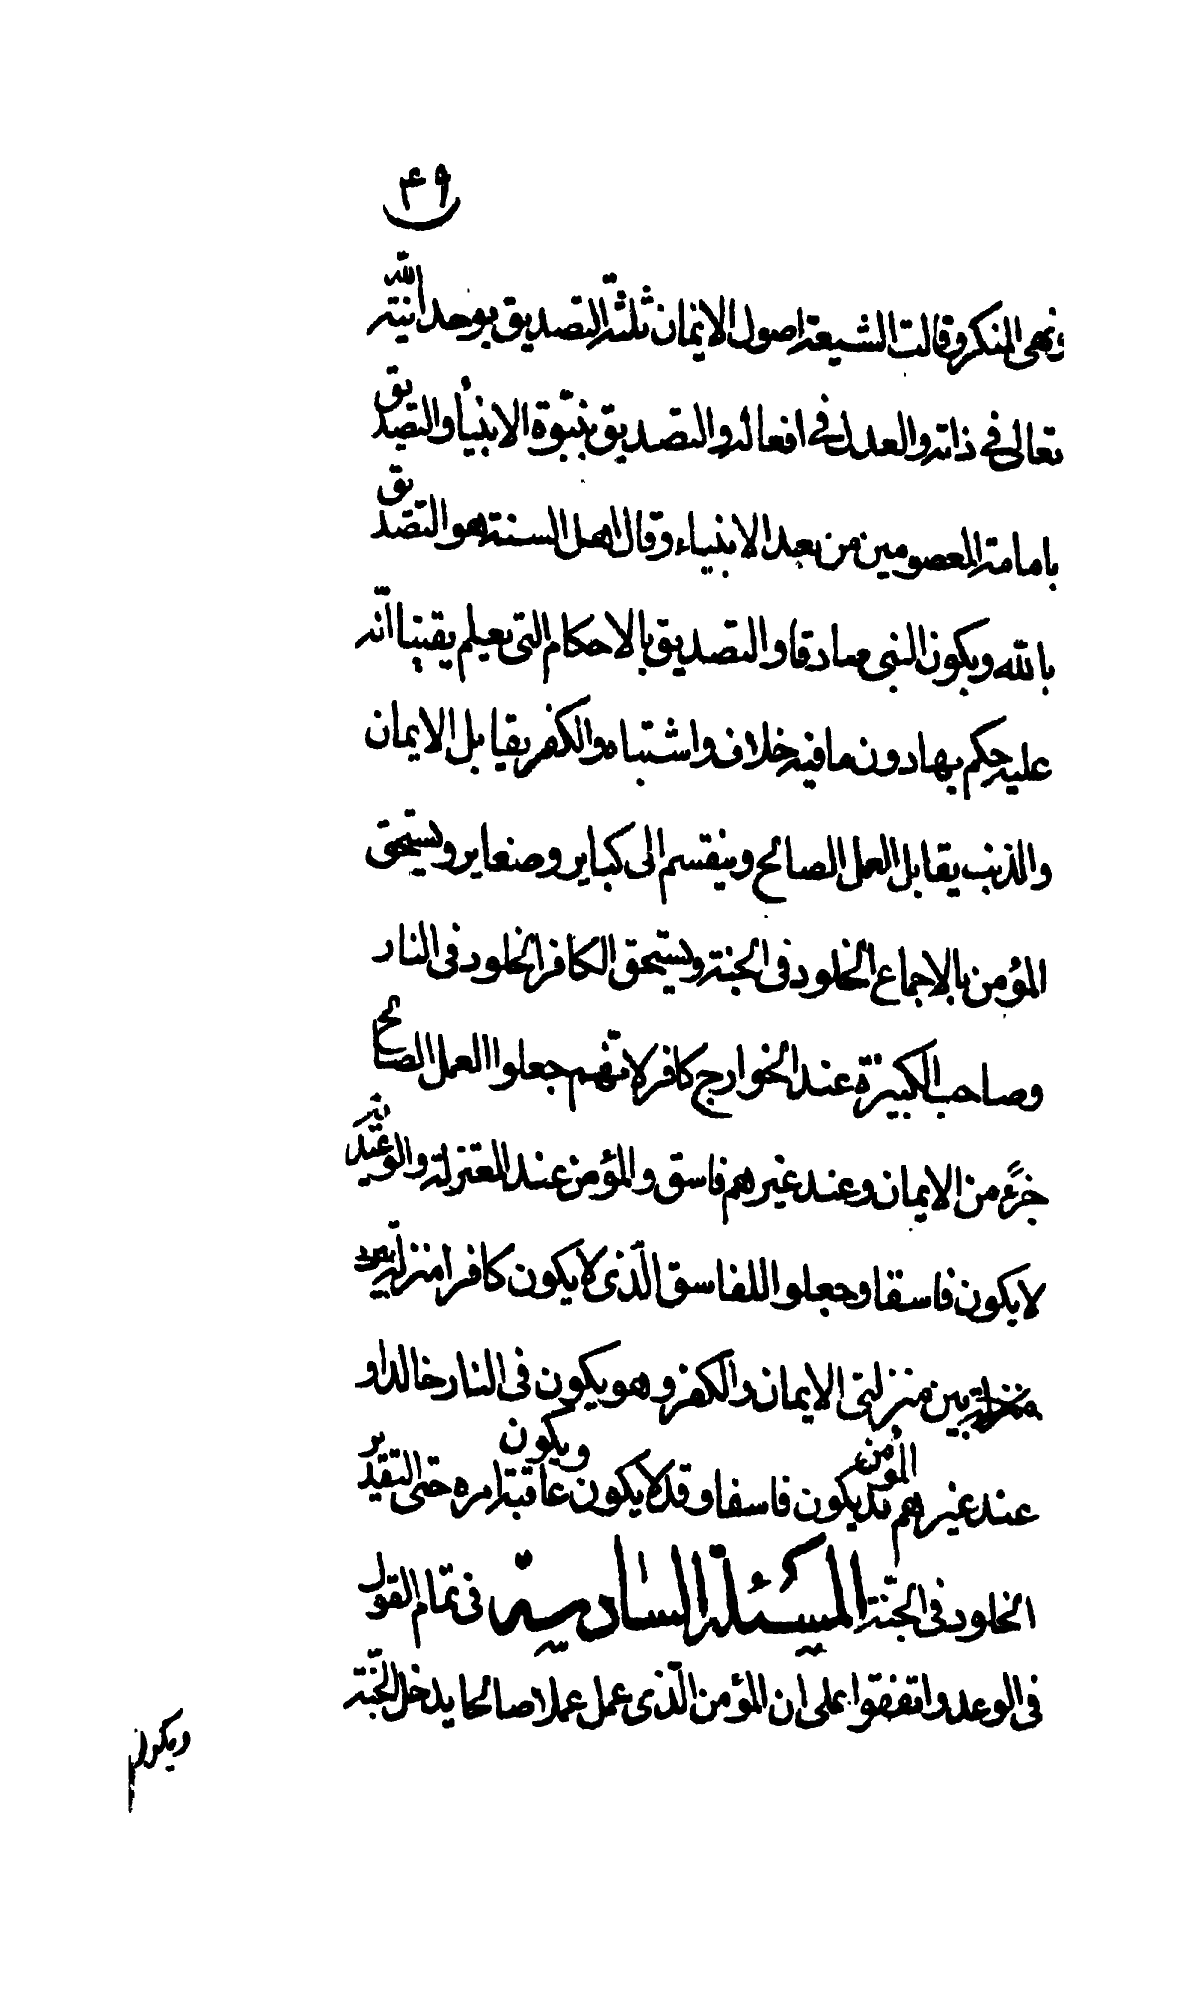 ٤٩
ونهى المنكر وقالت الشيعة اصول الايمان ثلثة التصديق بوحدانية الله
تعالى في ذاته والعدل في افعاله والتصديق بنبوة الانبيأ والتصديق
بامامة المعصومين من بعد الانبياء وقال اهل السنة هو التصديق
بالله ويكون النبى صادقا والتصديق بالاحكام التى يعلم يقينا انّه
عليه حكم بها دون ما فيه خلاف واشتباه والكفر يقابل الايمان
والذنب يقابل العمل الصالح وينقسم الى كباير وصغاير ويستحق
المؤمن بالاجماع الخلود فى الجنة ويستحق الكافر الخلود فى النار
وصاحب الكبيرة عند الخوارج كافر لانّهم جعلوا العمل الصالح
جزءً من الايمان وعند غيرهم فاسق والمؤمن عند المعتزلة والوعيدية
لا يكون فاسقا وجعلوا للفاسق الّذى لا يكون كافرا منزلة
بين منزلتى الايمان والكفر وهو يكون فى النار خالدا و
عند غيرهم المؤمن قد يكون فاسقا وقد لا يكون ويكون عاقبة امره حتى التقدير
الخلود فى الجنّة المسئلة السادسة فى تمام القول
فى الوعد واتفقوا على ان المؤمن الّذى عمل عملا صالحا يدخل الجنّة
ويكون